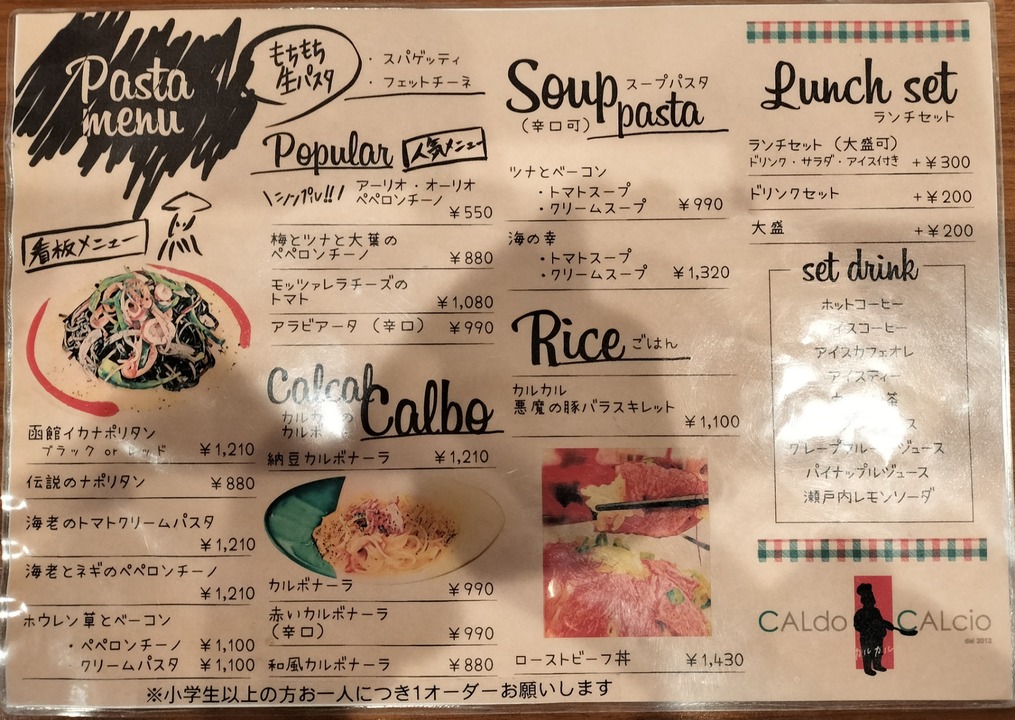 Pasta
menu
もちもち
生パスタ
・スパゲッティ
・フェットチーネ
看板メニュー
函館イカナポリタン
ブラック or レッド ¥1,210
伝説のナポリタン ¥880
海老のトマトクリームパスタ
¥1,210
海老とネギのペペロンチーノ
¥1,210
ホウレン草とベーコン
・ペペロンチーノ ¥1,100
クリームパスタ ¥1,100
Popular 人気メニュー
\シンプル!!/ アーリオ・オーリオ
ペペロンチーノ
¥550
梅とツナと大葉の
ペペロンチーノ ¥880
モッツァレラチーズの
トマト ¥1,080
アラビアータ（辛口） ¥990
Calcal
カルカルの
カルボ
Calbo
納豆カルボナーラ ¥1,210
カルボナーラ ¥990
赤いカルボナーラ
（辛口） ¥990
和風カルボナーラ ¥880
Soup スープパスタ
（辛口可） pasta
ツナとベーコン
・トマトスープ
・クリームスープ ¥990
海の幸
・トマトスープ
・クリームスープ ¥1,320
Rice ごはん
カルカル
悪魔の豚バラスキレット
¥1,100
ローストビーフ丼 ¥1,430
Lunch set
ランチセット
ランチセット（大盛可）
ドリンク・サラダ・アイス付き +¥300
ドリンクセット +¥200
大盛 +¥200
set drink
ホットコーヒー
アイスコーヒー
アイスカフェオレ
アイスティー
茶
ス
グレープフルーツジュース
パイナップルジュース
瀬戸内レモンソーダ
CALdo CALcio
dal 2012
カルカル
※小学生以上の方お一人につき1オーダーお願いします